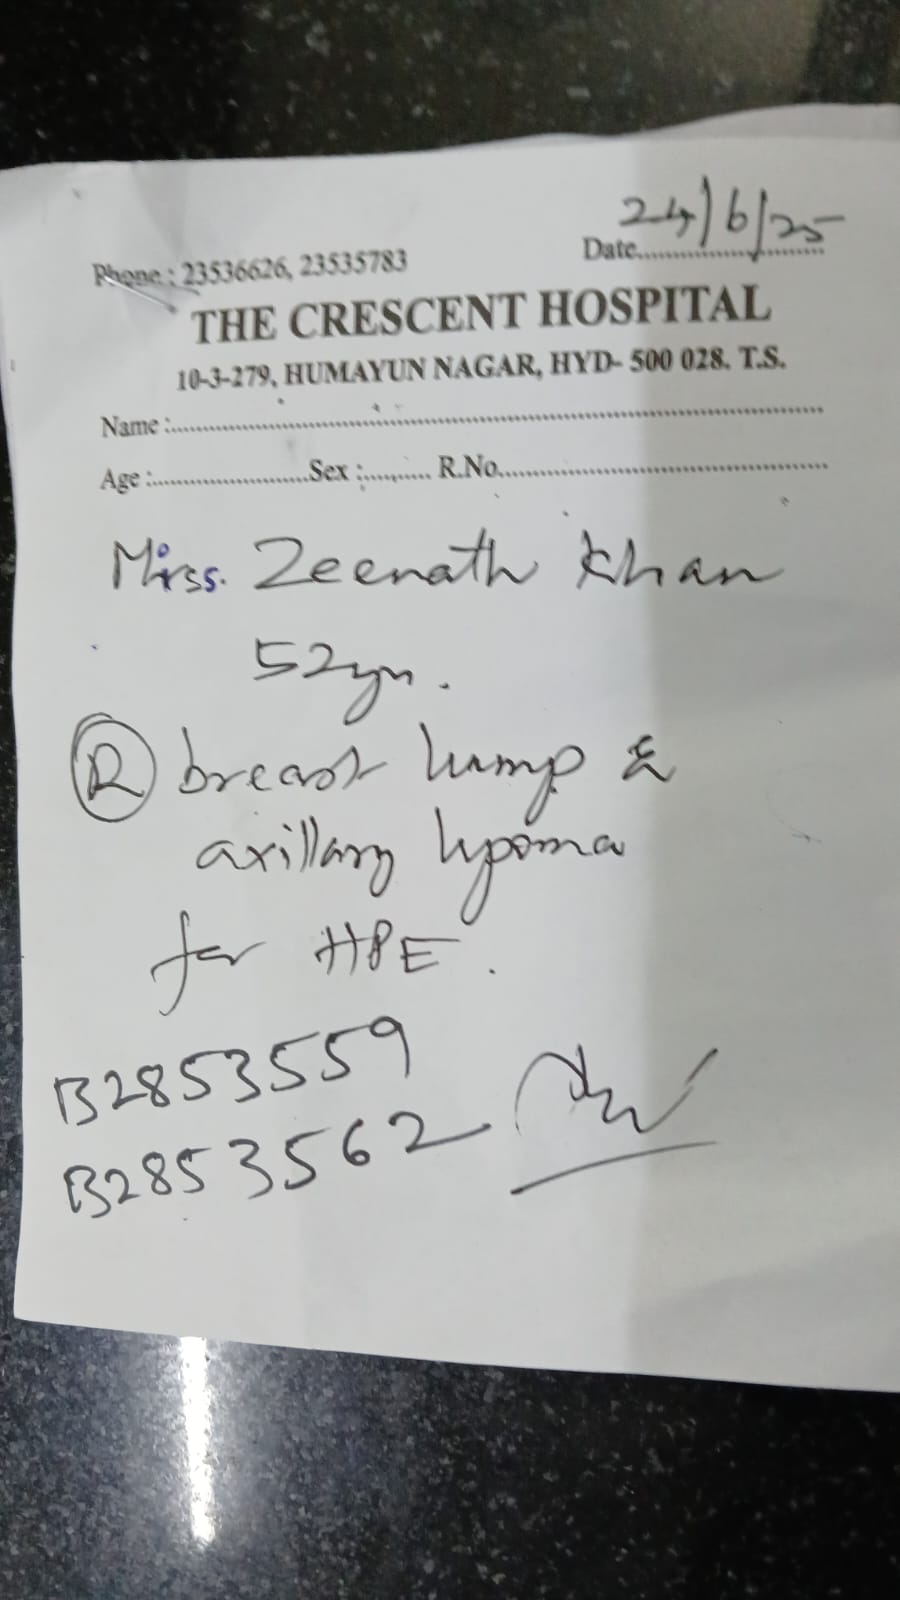 24/6/25
Phone : 23536626, 23535783 Date
THE CRESCENT HOSPITAL
10-3-279, HUMAYUN NAGAR, HYD- 500 028. T.S.
Name :
Age : Sex : R.No.
Miss. Zeenath Khan
52yrs.
(R) breast lump &
axillary lipoma
for HPE.
B2853559
B2853562